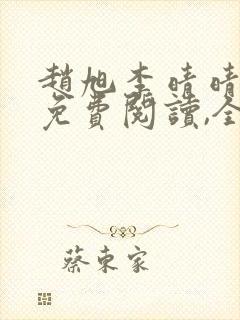 趙旭李晴晴
免費閱讀,全
蔡東家